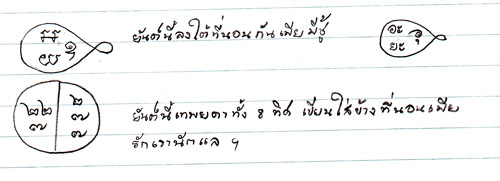 ยันต์นี้ลงใต้ที่นอนกันเมียมีชู้
อะ อุ
ยะ
๒๒ ๒
๗ ๗
๗
ยันต์นี้เทพยดาทั้ง 8 ทิศ เขียนใส่ข้างที่นอนเมีย
รักเรานักแล ฯ